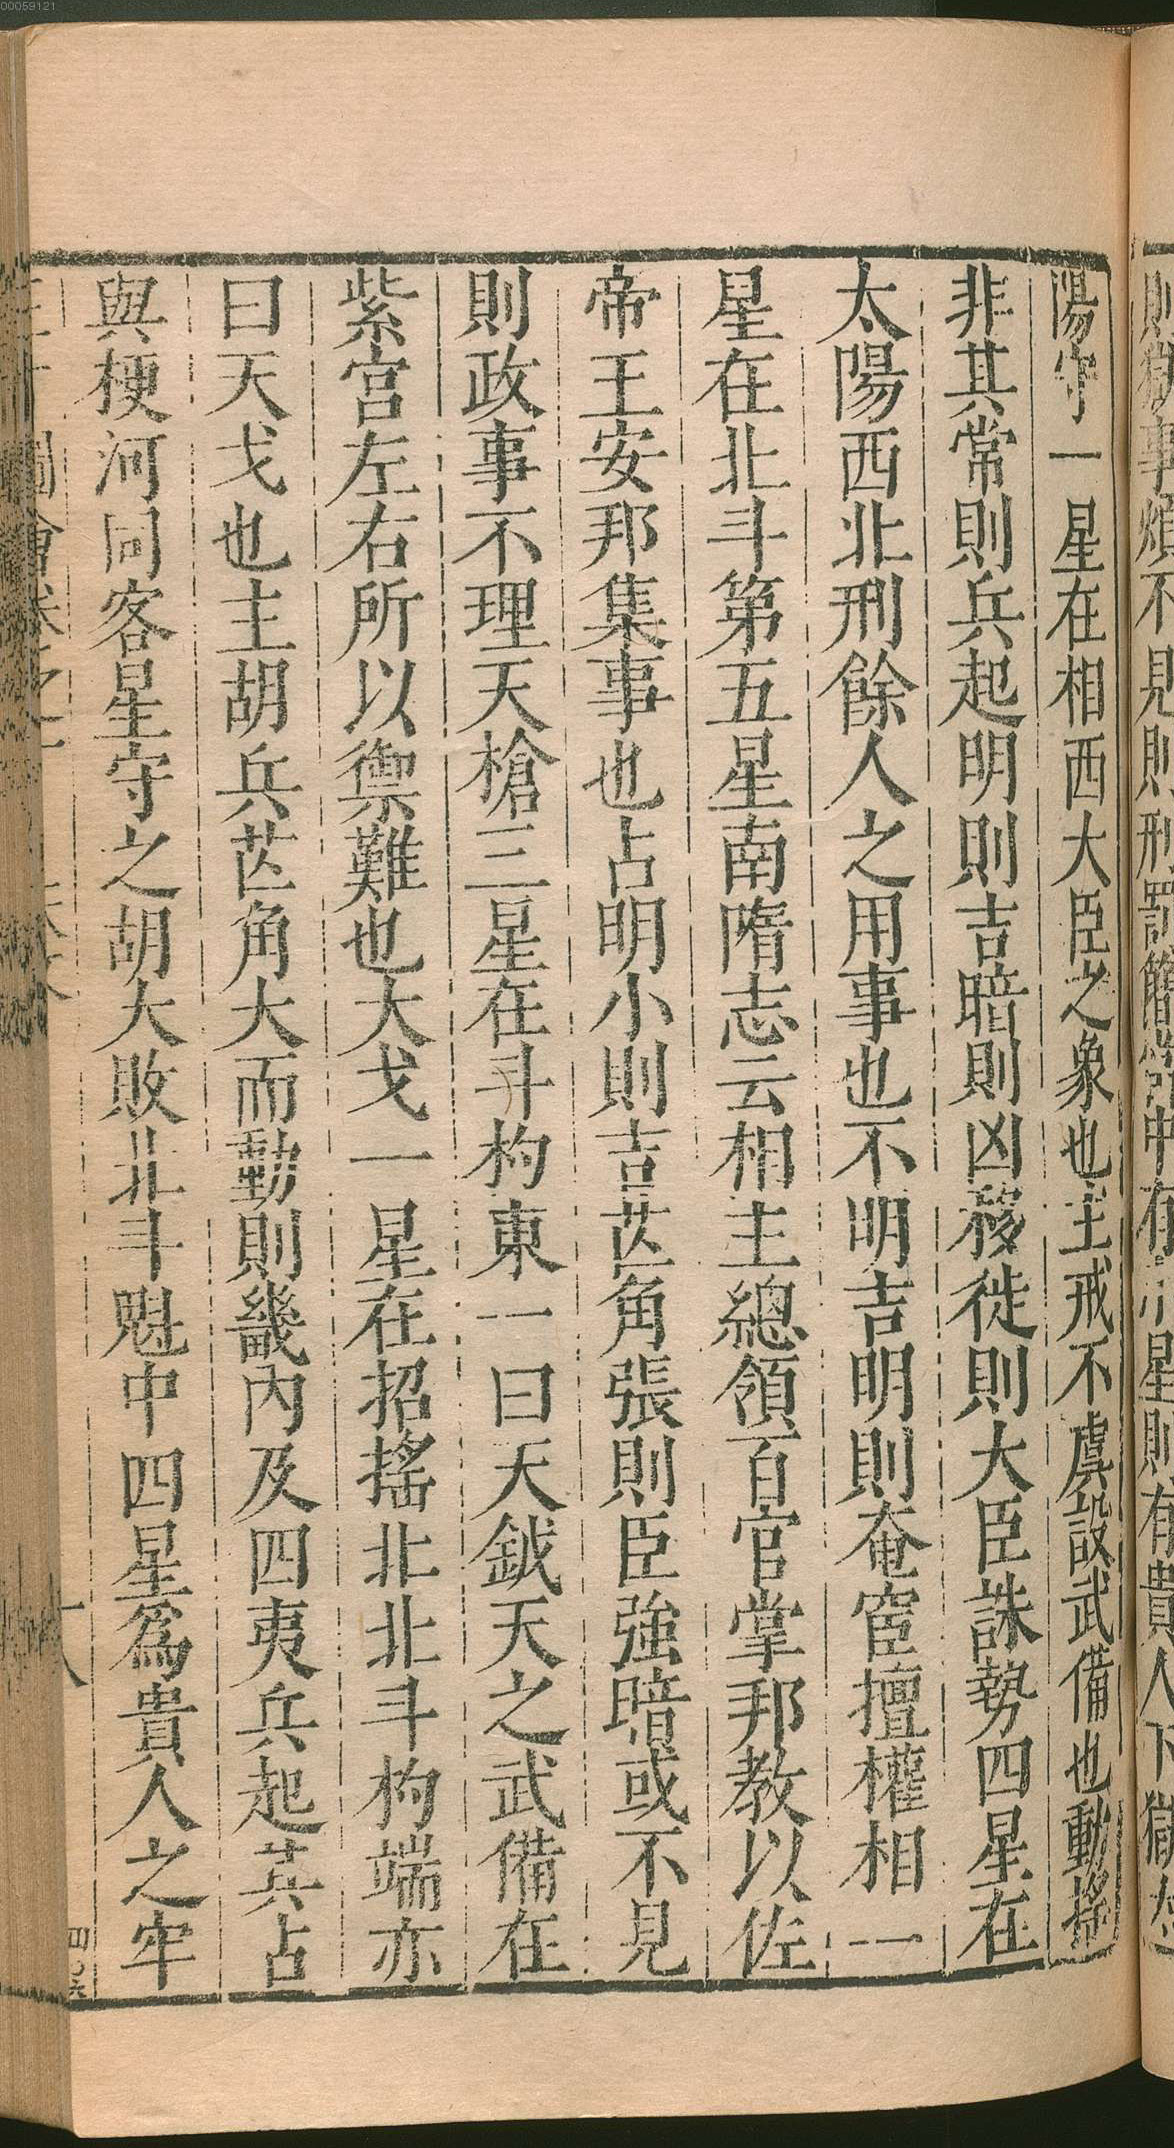 00059121
則獄事煩不見則刑罰簡當中有小星則有貴人下獄
陽守一星在相西大臣之象也主戒不虞設武備也動搖
非其常則兵起明則吉暗則凶移徙則大臣誅勢四星在
太陽西北刑餘人之用事也不明吉明則奄宦擅權相一
星在北斗第五星南隋志云相主總領百官掌邦教以佐
帝王安邦集事也占明小則吉芒角張則臣強暗或不見
則政事不理天槍三星在斗杓東一曰天鉞天之武備在
紫宮左右所以禦難也大戈一星在招搖北北斗杓端亦
曰天戈也主胡兵芒角大而動則畿內及四夷兵起其占
與梗河同客星守之胡大敗北斗魁中四星為貴人之牢
圖會卷之一
十八